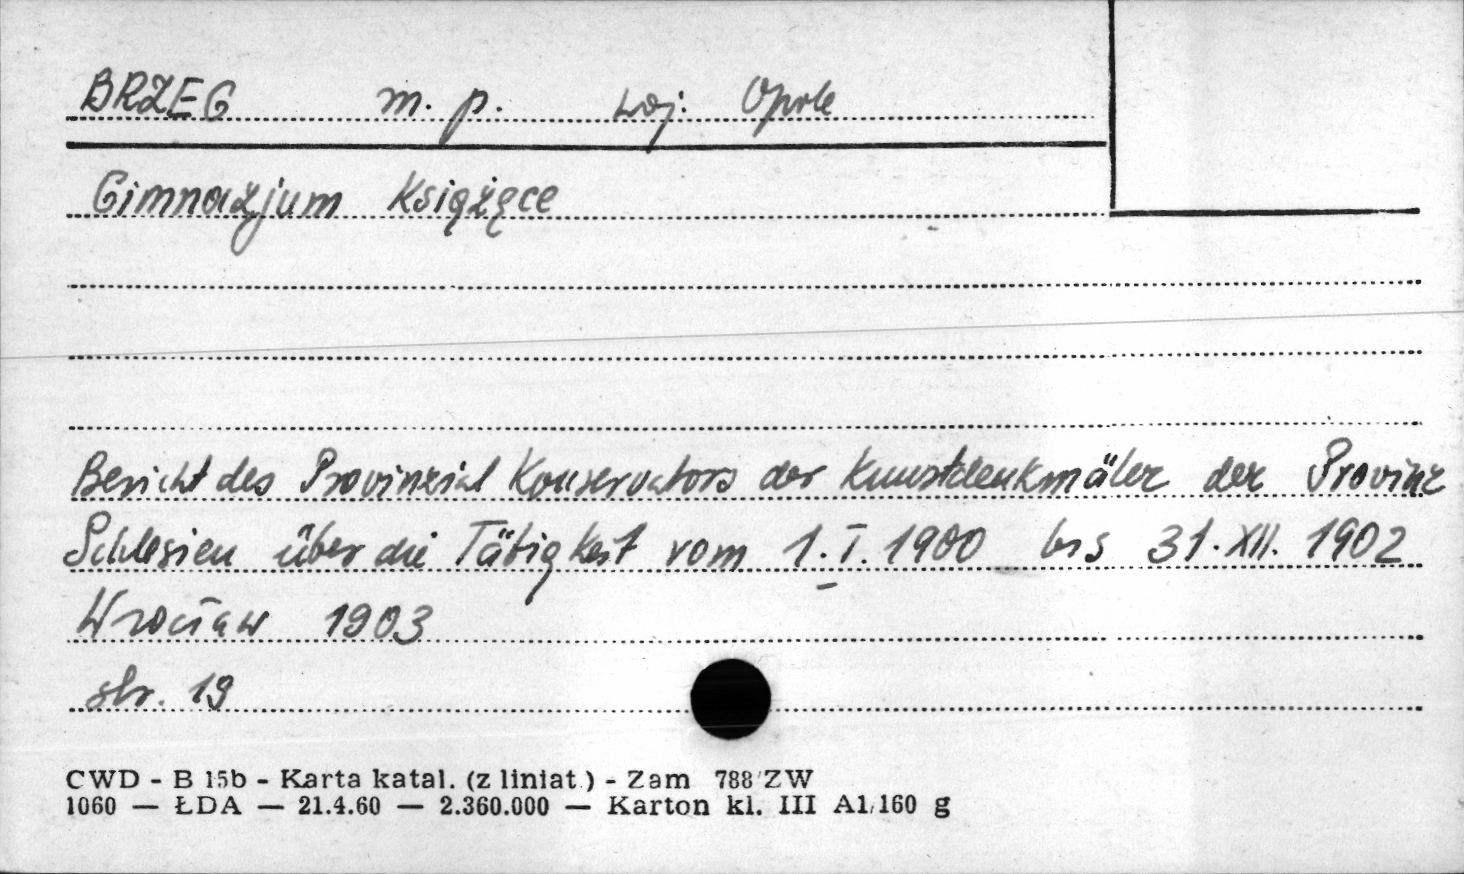 BRZEG m. p. woj. Opole
Gimnazjum Książęce
Bericht des Provinzial Konservators der Kunstdenkmäler der Provinz
Schlesien über die Tätigkeit vom 1. I. 1900 bis 31. XII. 1902
Wrocław 1903
str. 19
CWD - B 15b - Karta katal. (z liniat.) - Zam 788/ZW
1060 — ŁDA — 21.4.60 — 2.360.000 — Karton kl. III A1/160 g